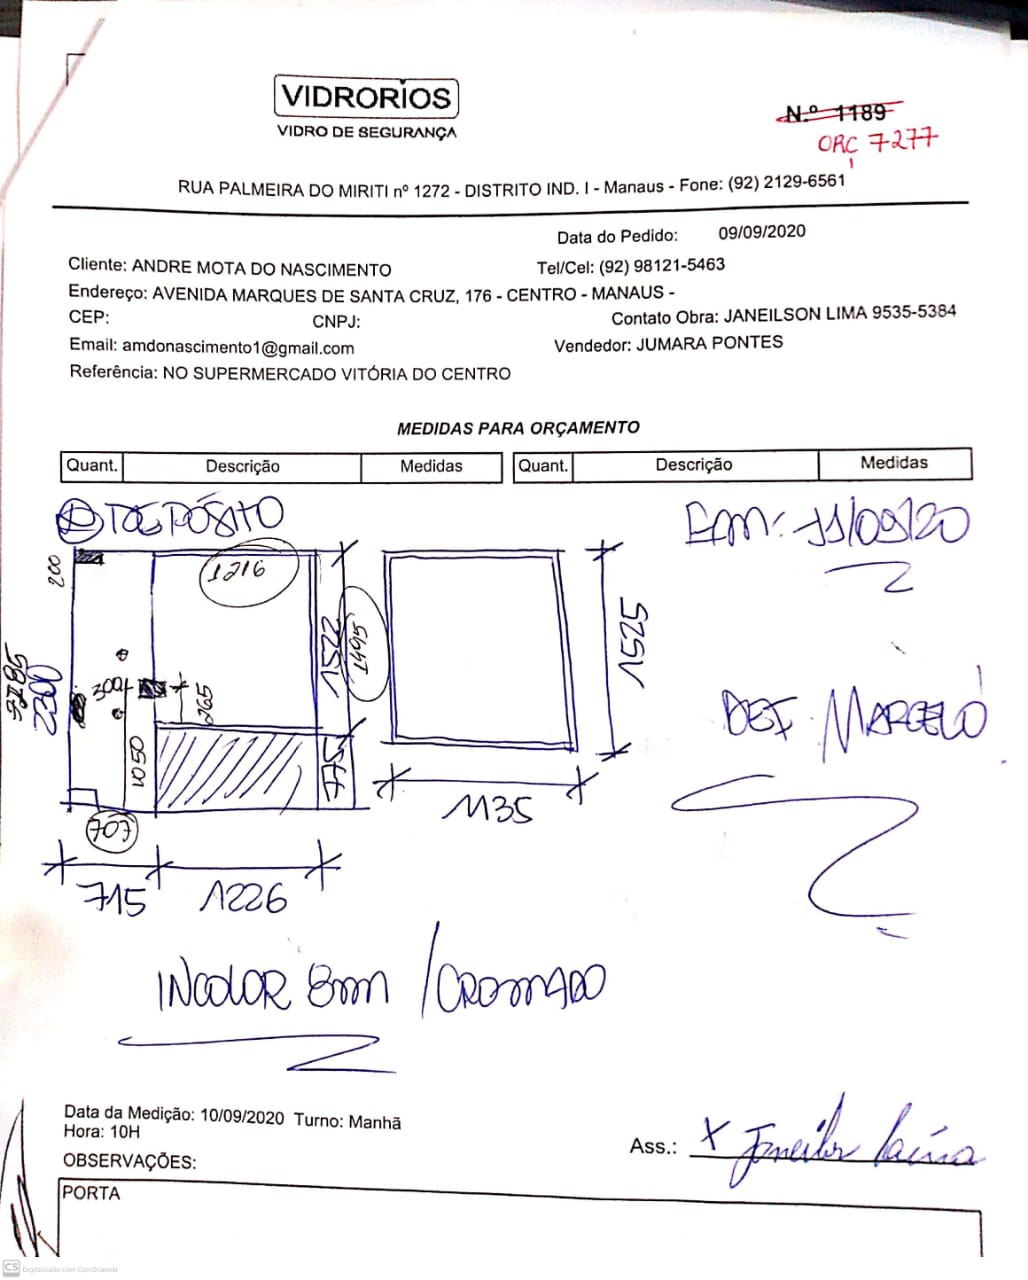 VIDRORIOS
VIDRO DE SEGURANÇA
N.º 1189
ORÇ 7277
RUA PALMEIRA DO MIRITI nº 1272 - DISTRITO IND. I - Manaus - Fone: (92) 2129-6561
Data do Pedido: 09/09/2020
Cliente: ANDRE MOTA DO NASCIMENTO Tel/Cel: (92) 98121-5463
Endereço: AVENIDA MARQUES DE SANTA CRUZ, 176 - CENTRO - MANAUS -
CEP: CNPJ: Contato Obra: JANEILSON LIMA 9535-5384
Email: amdonascimento1@gmail.com Vendedor: JUMARA PONTES
Referência: NO SUPERMERCADO VITÓRIA DO CENTRO
MEDIDAS PARA ORÇAMENTO
Quant. Descrição Medidas Quant. Descrição Medidas
DEPÓSITO
EM: 11/09/20
200
1216
1522
1495
1525
300
265
2300
1050
775
707
1135
715 1226
DEF MARCELO
INCOLOR 8mm / CROMADO
Data da Medição: 10/09/2020 Turno: Manhã
Hora: 10H
Ass.: X
OBSERVAÇÕES:
PORTA
CS Digitalizado com CamScanner